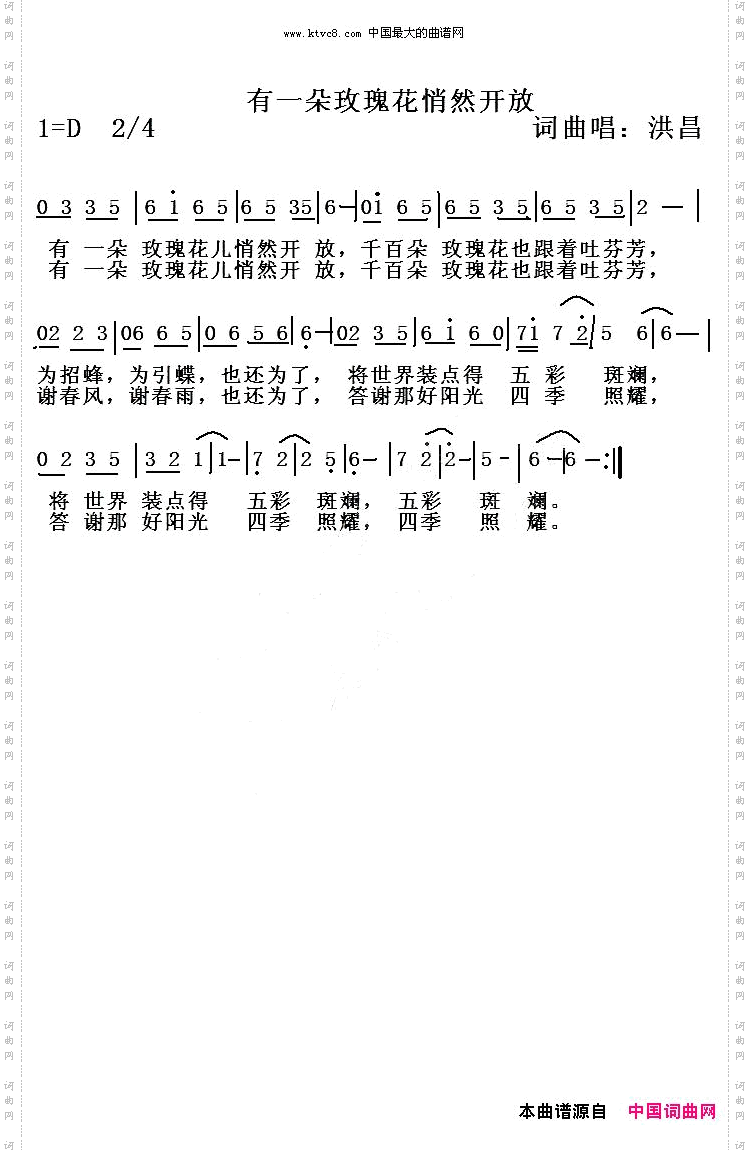 www.ktvc8.com 中国最大的曲谱网
有一朵玫瑰花悄然开放
1=D 2/4 词曲唱：洪昌
0 3 3 5 | 6 i 6 5 | 6 5 35 | 6 — | 0i 6 5 | 6 5 3 5 | 6 5 3 5 | 2 — |
有 一朵 玫瑰花儿悄然开 放，千百朵 玫瑰花也跟着吐芬芳，
有 一朵 玫瑰花儿悄然开 放，千百朵 玫瑰花也跟着吐芬芳，
02 2 3 | 06 6 5 | 0 6 5 6 | 6 — | 02 3 5 | 6 i 6 0 | 7i 7 2 | 5 6 | 6 — |
为招蜂，为引蝶，也还为了， 将世界装点得 五 彩 斑斓，
谢春风，谢春雨，也还为了， 答谢那好阳光 四 季 照耀，
0 2 3 5 | 3 2 1 | 1- | 7 2 | 2 5 | 6- | 7 2 | 2- | 5- | 6- | 6- :||
将 世界 装点得 五彩 斑斓， 五彩 斑 斓。
答 谢那 好阳光 四季 照耀， 四季 照 耀。
本曲谱源自 中国词曲网